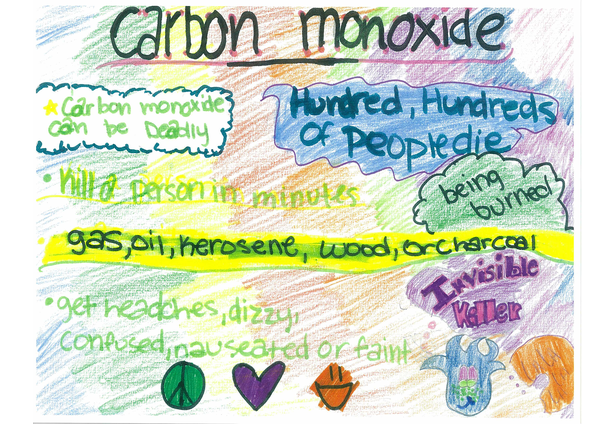 Carbon monoxide
Carbon monoxide
can be Deadly
Hundred, Hundreds
of People die
• Kill a person in minutes
being
burned
gas, oil, kerosene, wood, or charcoal
Invisible
Killer
• get headches, dizzy,
confused, nauseated or faint